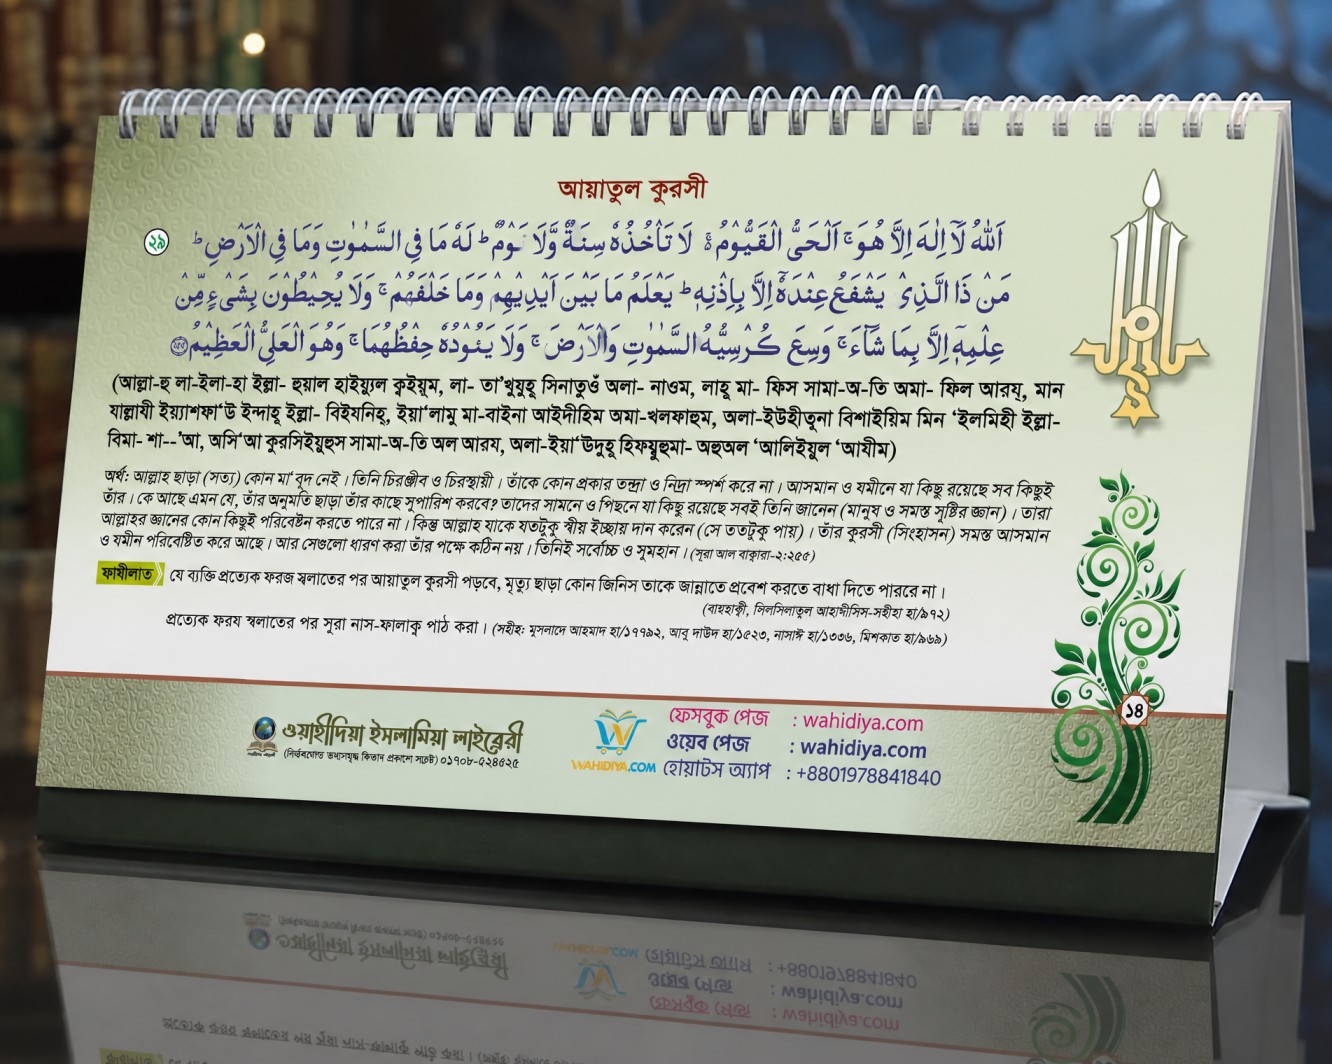 আয়াতুল কুরসী
২৯
اَللّٰهُ لَآ اِلٰهَ اِلَّا هُوَ ۚ اَلْحَيُّ الْقَيُّوْمُ ۚ۬ لَا تَاْخُذُهٗ سِنَةٌ وَّلَا نَوْمٌ ؕ لَهٗ مَا فِي السَّمٰوٰتِ وَمَا فِي الْاَرْضِ ؕ
مَنْ ذَا الَّذِيْ يَشْفَعُ عِنْدَهٗۤ اِلَّا بِاِذْنِهٖ ؕ يَعْلَمُ مَا بَيْنَ اَيْدِيْهِمْ وَمَا خَلْفَهُمْ ۚ وَلَا يُحِيْطُوْنَ بِشَيْءٍ مِّنْ
عِلْمِهٖۤ اِلَّا بِمَا شَآءَ ۚ وَسِعَ كُرْسِيُّهُ السَّمٰوٰتِ وَالْاَرْضَ ۚ وَلَا يَـُٔوْدُهٗ حِفْظُهُمَا ۚ وَهُوَ الْعَلِيُّ الْعَظِيْمُ ﴿۲۵۵﴾
(আল্লা-হু লা-ইলা-হা ইল্লা- হুয়াল হাইয়্যুল ক্বইয়ূম, লা- তা'খুযুহূ সিনাতুওঁ অলা- নাওম, লাহূ মা- ফিস সামা-অ-তি অমা- ফিল আরয্, মান
যাল্লাযী ইয়্যাশফা'উ ইন্দাহূ ইল্লা- বিইযনিহ্, ইয়া'লামু মা-বাইনা আইদীহিম অমা-খলফাহুম, অলা-ইউহীতূনা বিশাইয়িম মিন 'ইলমিহী ইল্লা-
বিমা- শা--'আ, অসি'আ কুরসিইয়ুহুস সামা-অ-তি অল আরয, অলা-ইয়া'উদুহূ হিফযুহুমা- অহুঅল 'আলিইয়ুল 'আযীম)
অর্থ: আল্লাহ ছাড়া (সত্য) কোন মা'বূদ নেই। তিনি চিরঞ্জীব ও চিরস্থায়ী। তাঁকে কোন প্রকার তন্দ্রা ও নিদ্রা স্পর্শ করে না। আসমান ও যমীনে যা কিছু রয়েছে সব কিছুই
তাঁর। কে আছে এমন যে, তাঁর অনুমতি ছাড়া তাঁর কাছে সুপারিশ করবে? তাদের সামনে ও পিছনে যা কিছু রয়েছে সবই তিনি জানেন (মানুষ ও সমস্ত সৃষ্টির জ্ঞান)। তারা
আল্লাহর জ্ঞানের কোন কিছুই পরিবেষ্টন করতে পারে না। কিন্তু আল্লাহ যাকে যতটুকু স্বীয় ইচ্ছায় দান করেন (সে ততটুকু পায়)। তাঁর কুরসী (সিংহাসন) সমস্ত আসমান
ও যমীন পরিবেষ্টিত করে আছে। আর সেগুলো ধারণ করা তাঁর পক্ষে কঠিন নয়। তিনিই সর্বোচ্চ ও সুমহান। (সূরা আল বাক্বারা-২:২৫৫)
ফাযীলাত যে ব্যক্তি প্রত্যেক ফরজ স্বলাতের পর আয়াতুল কুরসী পড়বে, মৃত্যু ছাড়া কোন জিনিস তাকে জান্নাতে প্রবেশ করতে বাধা দিতে পারবে না।
(বায়হাক্বী, সিলসিলাতুল আহাদীসিস-সহীহা হা/৯৭২)
প্রত্যেক ফরয স্বলাতের পর সুরা নাস-ফালাকু পাঠ করা। (সহীহ: মুসনাদে আহমাদ হা/১৭৭৯২, আবূ দাউদ হা/১৫২৩, নাসাঈ হা/১৩৩৬, মিশকাত হা/৯৬৯)
১৪
ওয়াহীদিয়া ইসলামিয়া লাইব্রেরী
(নির্ভরযোগ্য তথ্যসমৃদ্ধ কিতাব প্রকাশে সচেষ্ট) ০১৭০৮-৫২৪৫২৫
WAHIDIYA.COM
ফেসবুক পেজ : wahidiya.com
ওয়েব পেজ : wahidiya.com
হোয়াটস অ্যাপ : +8801978841840